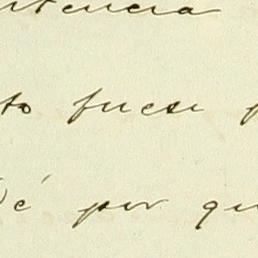 ntencia
to fuese p
é por qu